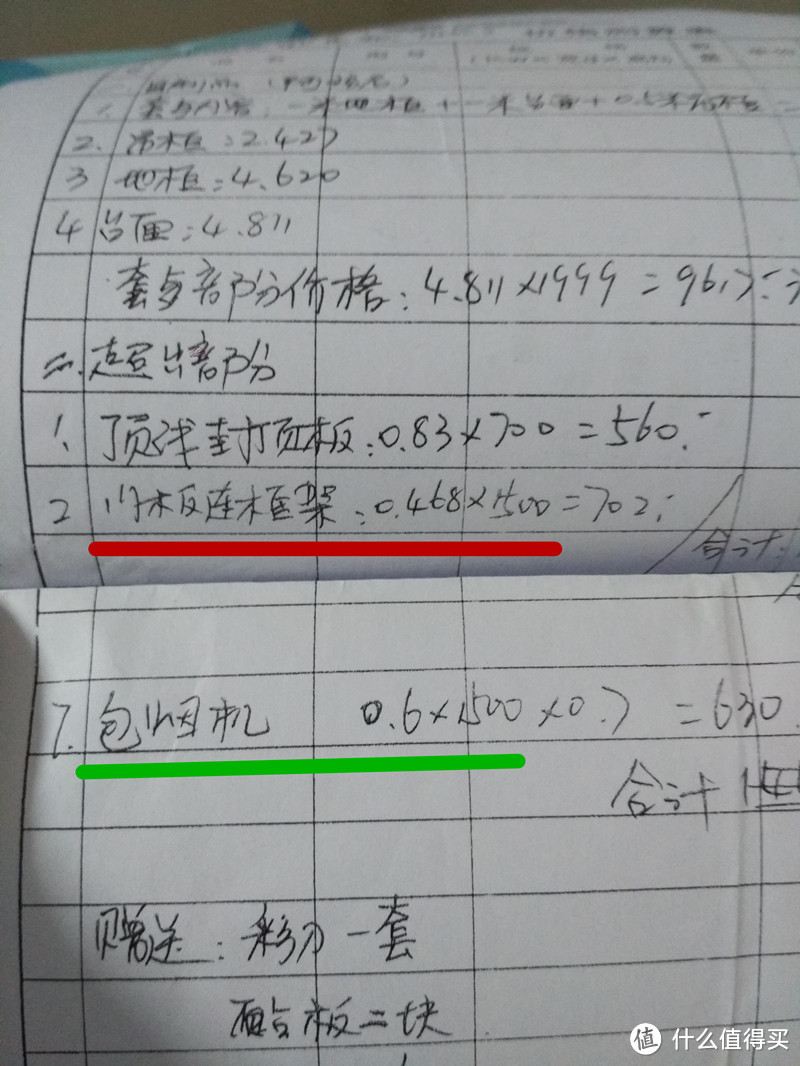 2. 吊柜:2.427
3 地柜:4.620
4 台面:4.811
套与部份价格:4.811×1999=9617
二.超出部份
1、顶线封顶板:0.83×700=560.
2 门板连框架:0.468×1500=702
合计
7. 包烟机 0.6×1500×0.7=630.
合计
赠送:彩刀一套
面台板二块
值 什么值得买